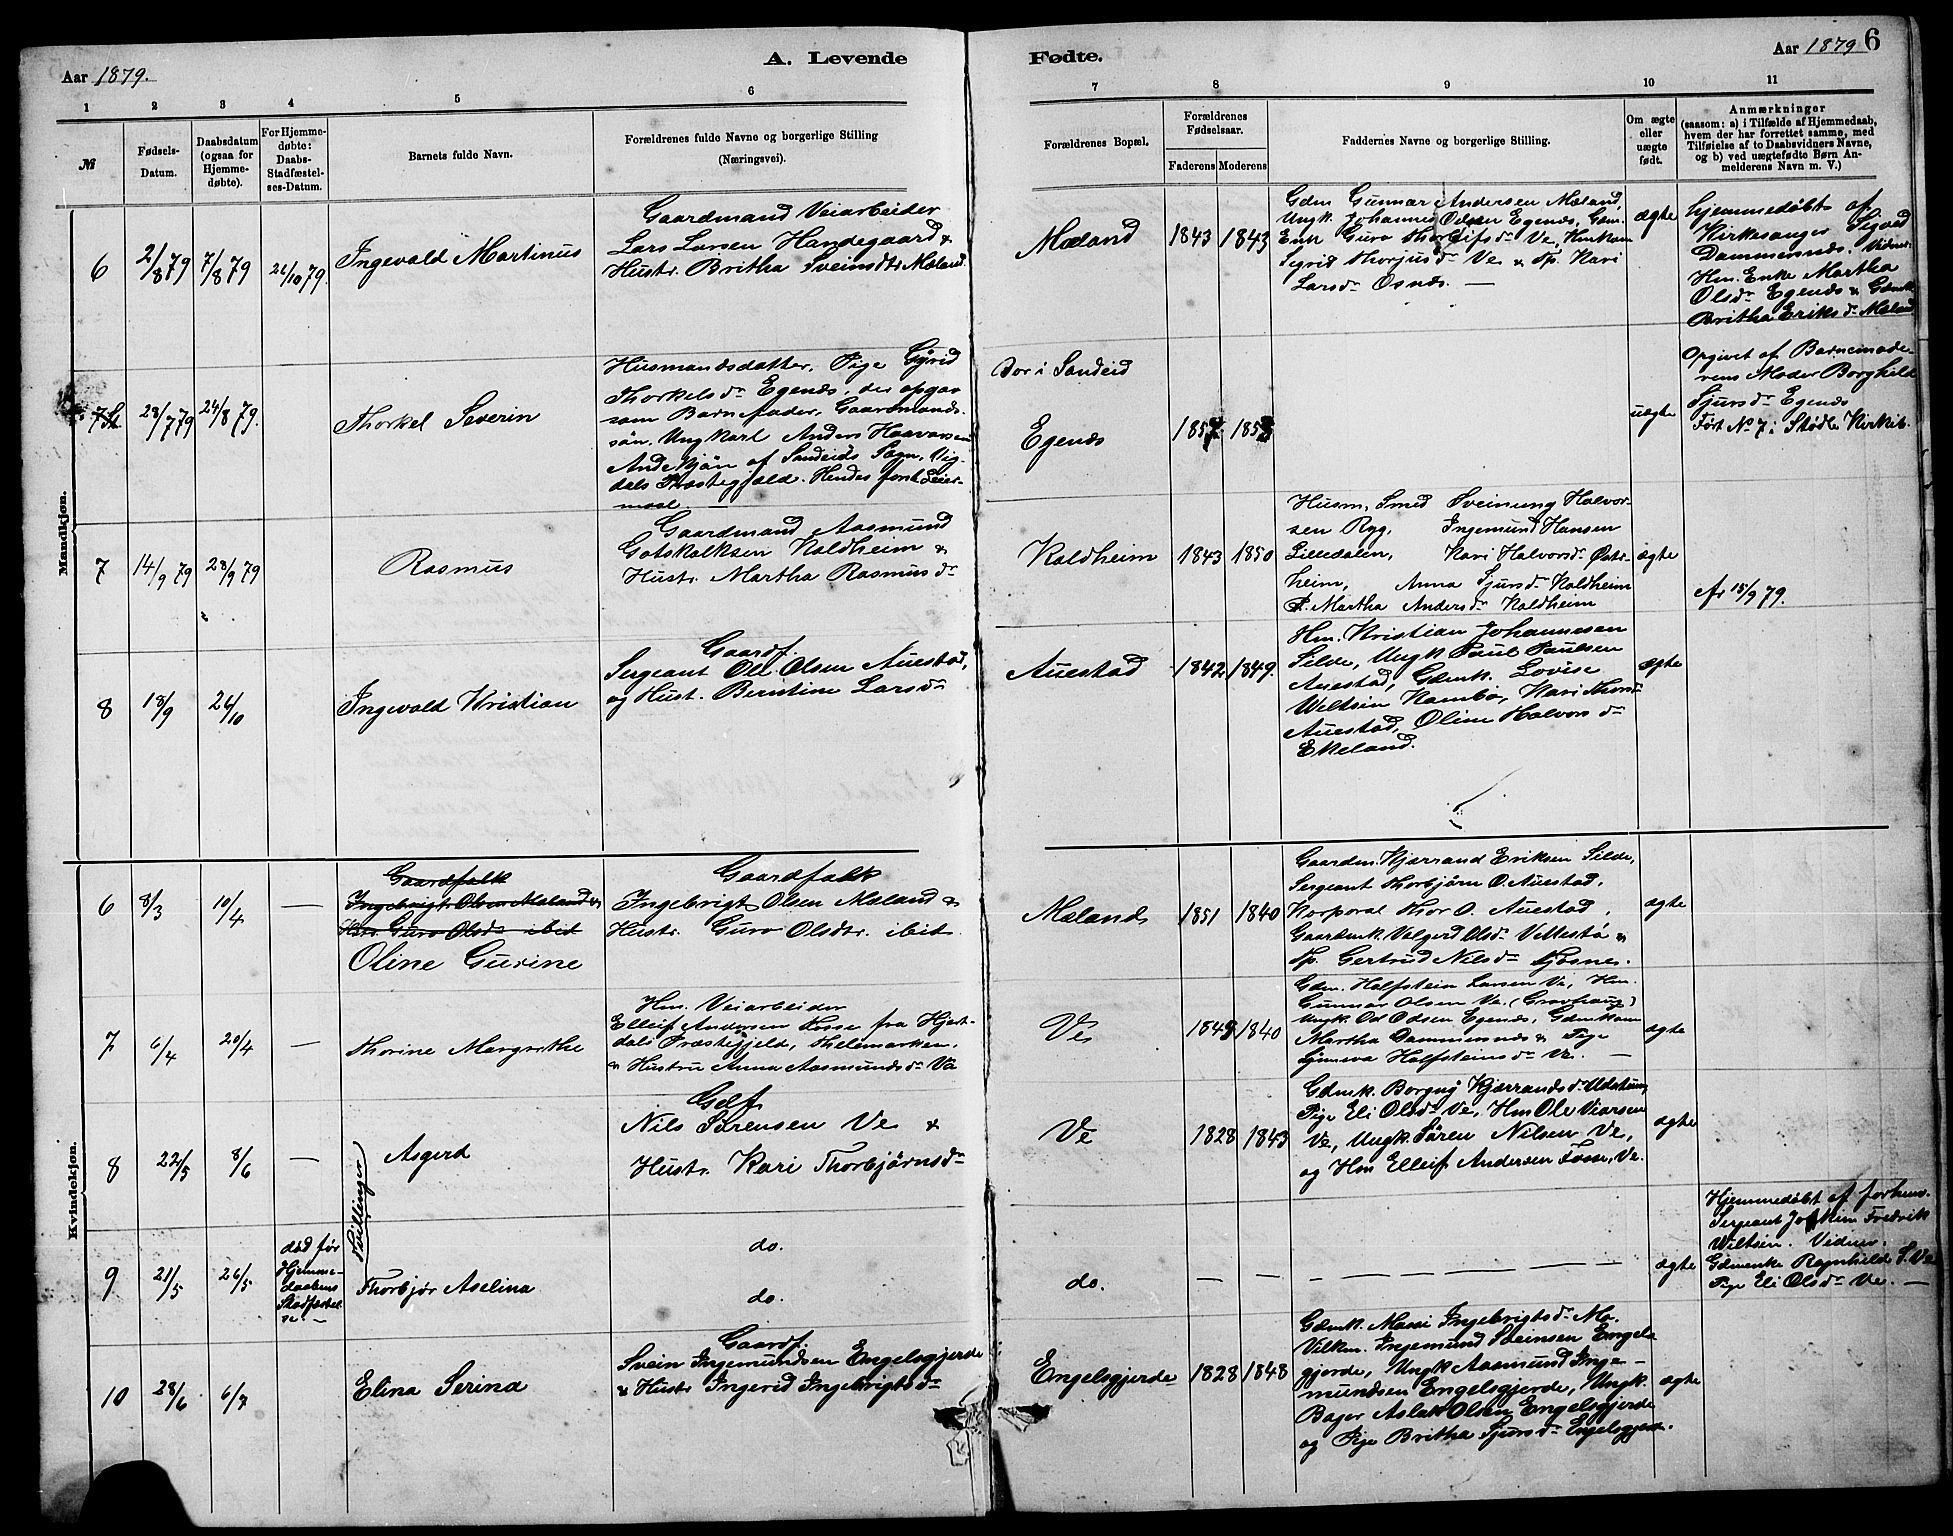 A. Levende
Fødte.
Aar 1879.
Aar 1879
6
1
2
3
4
5
6
7
8
9
10
11
№
Fødsels-
Datum.
Daabsdatum
(ogsaa for
Hjemme-
døbte).
For Hjemme-
døbte:
Daabs-
Stadfæstel-
ses-Datum.
Barnets fulde Navn.
Forældrenes fulde Navne og borgerlige Stilling
(Næringsvei).
Forældrenes Bopæl.
Forældrenes
Fødselsaar.
Faderens
Moderens
Faddernes Navne og borgerlige Stilling.
Om ægte
eller
uægte
født.
Anmærkninger
(saasom: a) i Tilfælde af Hjemmedaab,
hvem der har forrettet samme, med
Tilføielse af to Daabsvidners Navne,
og b) ved uægtefødte Børn An-
melderens Navn m. V.)
Mandkjøn.
6
2/8 79
7/8 79
26/10 79.
Ingevald Martinus
Gaardmand Veiarbeider
Lars Larsen Handegaard &
Hustr. Britha Sveinsdtr Mæland.
Mæland
1843
1843
Gdm Gunnar Andersen Mæland,
Ungk. Johannes Odsen Egenæs, Gdm.
Enk Guro Thorleifsdr Ve, Hmkam
Sigrid Thorjusdr Ve & Tp. Kari
Larsdr Osnæs. —
ægte
Hjemmedøbt af
Kirkesanger Sigvad
Dammensnæs. Vidner
Hm. Enke Martha
Olsdr Egenæs & Gdmk
Britha Eriksdr Mæland
7
28/7 79
24/8 79.
Thorkel Severin
Husmandsdatter, Pige Gyrid
Thorkelsdr Egenæs, der opgav
som Barnefader, Gaardmands-
søn, Ungkarl Anders Haavorsen
Andekjøn af Sandeids Sogn, Vig-
dals Præstegjæld. Hendes første Leier-
maal —
Bor i Sandeid
Egenæs
1857
1853
uægte
Opgivet af Barnemode-
rens Moder Borghild
Sjursdr Egenæs
Ført No 7 i Stødle Kirkeb.
7
14/9 79
28/9 79
Rasmus
Gaardmand Aasmund
Gotskalksen Koldheim &
Hustr. Martha Rasmusdr
Koldheim
1843
1850
Husm, Smed Sveinung Halvor-
sen Ryg, Ingemund Hansen
Lilledalen, Kari Halvorsdr Øster-
heim, Anna Sjursdr Koldheim
P. Martha Andersdr Koldheim
ægte
15/9 79.
8
18/9
26/10
Ingevald Kristian
Gaardf.
Sergeant Ole Olsen Auestad,
og Hust. Berntine Larsdr
Auestad
1842
1849.
Hm. Kristian Johannesen
Silde, Ungk Paul Paulsen
Auestad, Gdmk. Lovise
Wiltsin Kambo, Kari Thorsdr
Auestad, Oline Halvorsdr
Ekeland.
ægte
Kvindekjøn.
6
8/3
10/4
—
Gaardfolk
Ingebrigt Olsen Mæland &
Hstr. Guro Olsdr ibid
Oline Gurine
Gaardfolk
Ingebrigt Olsen Mæland &
Hustr. Guro Olsdtr. ibid.
Mælands
1851
1840
Gaardm. Kjærrand Eriksen Silde,
Sergeant Thorbjørn O. Auestad,
Korporal Thor O. Auestad,
Gaardmk. Valgerd Olsdr Vettestø &
Tp. Gertrud Nilsdr Tjøsnes.
ægte
7
6/4
20/4
—
Thorine Margrethe
Hm. Veiarbeider
Elleif Andersen Fosse fra Hjert-
dals Præstegjeld, Thelemarken.
& Hustru Anna Aasmundsdr Ve
Ve
1848
1840
Gdm. Halfstein Larsen Ve, Hm.
Gunnar Olsen Ve (Gravhaug)
Ungk Od Odsen Egenæs, Gdmkom
Martha Dammensnæs & Pige
Synneva Halfsteinsdr Ve. —
ægte
Tvillinger
8
22/5
8/6
—
Asgerd
Gdf
Nils Sørensen Ve &
Hustr. Kari Thorbjørnsdr
Ve
1828
1843
Gdmk. Borgny Kjærrandsdr Østtun,
Pige Eli Olsdr Ve, Hm Ole Viarsen
Ve, Ungk. Søren Nilsen Ve,
og Hm Elleif Andersen Fosse, Ve.
ægte
9
21/5
26/5
død før
Hjemme-
daabens
Stadfæstel-
se. —
Thorbjør Aselina
do.
do.
do.
— — — — — — — — —
ægte
Hjemmedøbt af forhenv.
Sergeant Joakim Fredrik
Wiltsin. Vidner.
Gdmenke Ragnhilde S. Ve
Pige Eli Olsdr Ve. —
10
28/6
6/7
Elina Serina
Gaardf.
Svein Ingemundsen Engelsgjerde
& Hustr Ingerid Ingebrigtsdr
Engelsgjerde
1828
1848
Gdmk. Massi Ingebrigtsdr Mo.
Vilkm. Ingemund Sveinsen Engels
gjerde, Ungk Aasmund Inge-
mundsen Engelsgjerde, Ungk.
Bager Aslak Olsen Engelsgjerde
og Pige Britha Sjursdr Engelsgjerde.
ægte